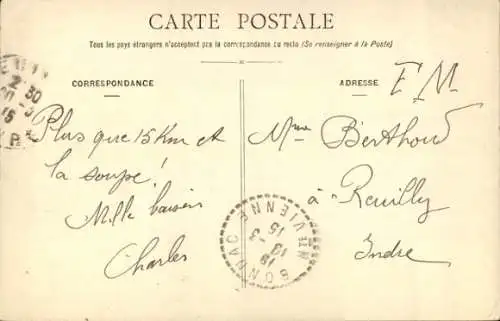 CARTE POSTALE
Tous les pays étrangers n'acceptent pas la correspondance au recto (Se renseigner à la Poste)
CORRESPONDANCE
ADRESSE
F M
Plus que 15 Km et
la soupe!
Mille baisers
Charles
Mme Berthoud
à Reuilly
Indre
BONNAC
HTE VIENNE
15
3